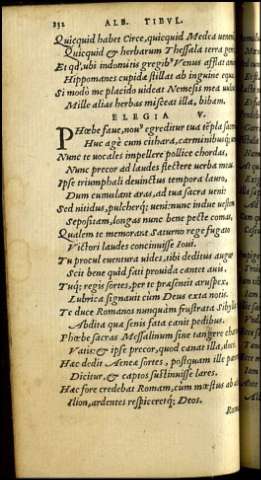 232 ALB. TIBVL.
Quicquid habet Circe, quicquid Medea veneni
Quicquid & herbarum Thessala terra
Et qđ, ubi indomitis gregibꝰ Venus afflat
Hippomanes cupidæ stillat ab inguine equæ
Si modò me placido uideat Nemesis mea
Mille alias herbas misceat illa, bibam.
ELEGIA V.
PHœbe faue, nouꝰ egreditur tua tẽpla
Huc age cum cithara, carminibusq́;
Nunc te uocales impellere pollice chordas,
Nunc precor ad laudes flectere uerba
Ipse triumphali deuinctus tempora lauro,
Dum cumulant aras, ad tua sacra ueni:
Sed nitidus, pulcherq́; ueni: nunc indue
Sepositam, longas nunc bene pecte comas,
Qualem te memorant Saturno rege fugato
Victori laudes concinuisse Ioui.
Tu procul euentura uides, tibi deditus augur
Scit bene quid fati prouida cantet auis.
Tuq́; regis sortes, per te præsentit aruspex,
Lubrica signauit cùm Deus exta notis.
Te duce Romanos nunquam frustrata Sibylla
Abdita quæ senis fata canit pedibus.
Phœbe sacras Messalinum sine tangere
Vatis: & ipse precor, quod canat illa, doce.
Hæc dedit Aeneæ sortes, postquam ille
Dicitur, & captos sustinuisse lares.
Hæc fore credebat Romam, cùm mœstus ab
Ilion, ardentes respiceretq́; Deos.